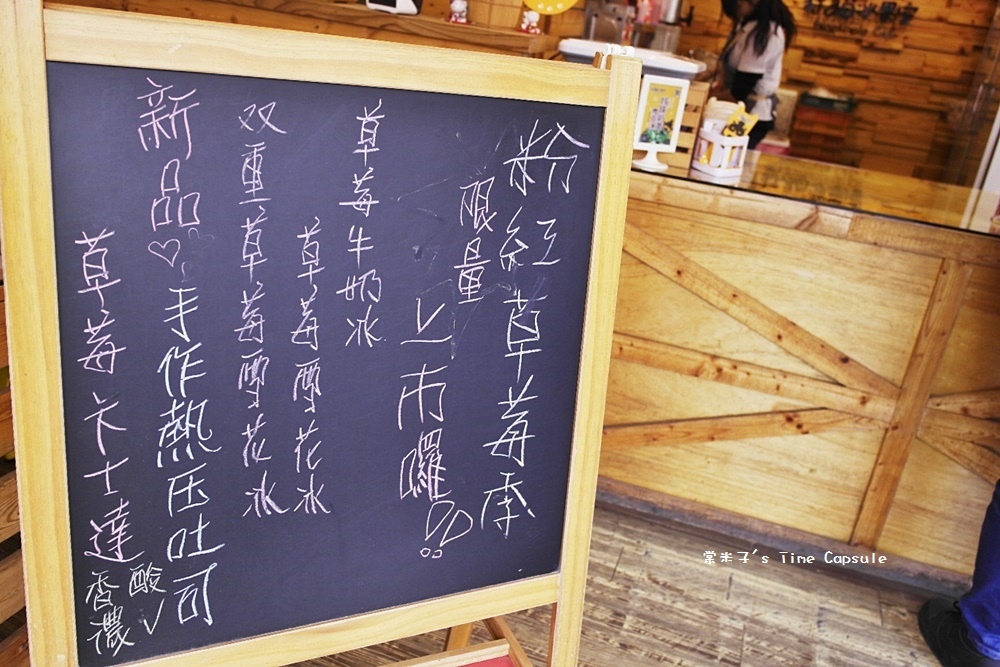 粉紅草莓季
限量
上市囉!!
草莓牛奶冰
草莓雪花冰
双重草莓雪花冰
新品♡手作熱压吐司
草莓卡士達
酸√
香濃
棠米子's Time Capsule